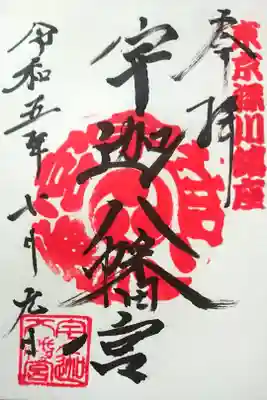 東京深川鎮座
奉拝
宇迦八幡宮
令和五年
宇迦八幡宮